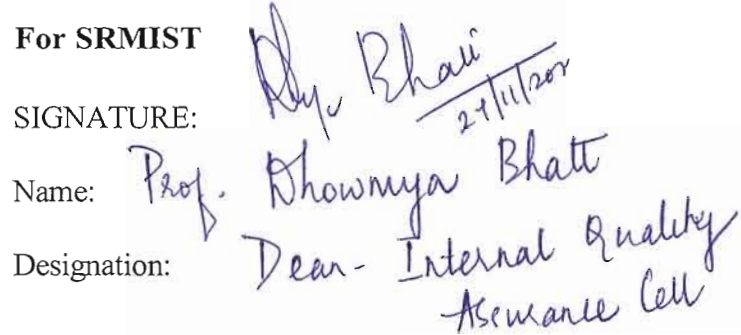 For SRMIST
SIGNATURE: Bhatt
Name: Prof. Dhowmya Bhatt
Designation: Dean- Internal Quality
Assurance Cell